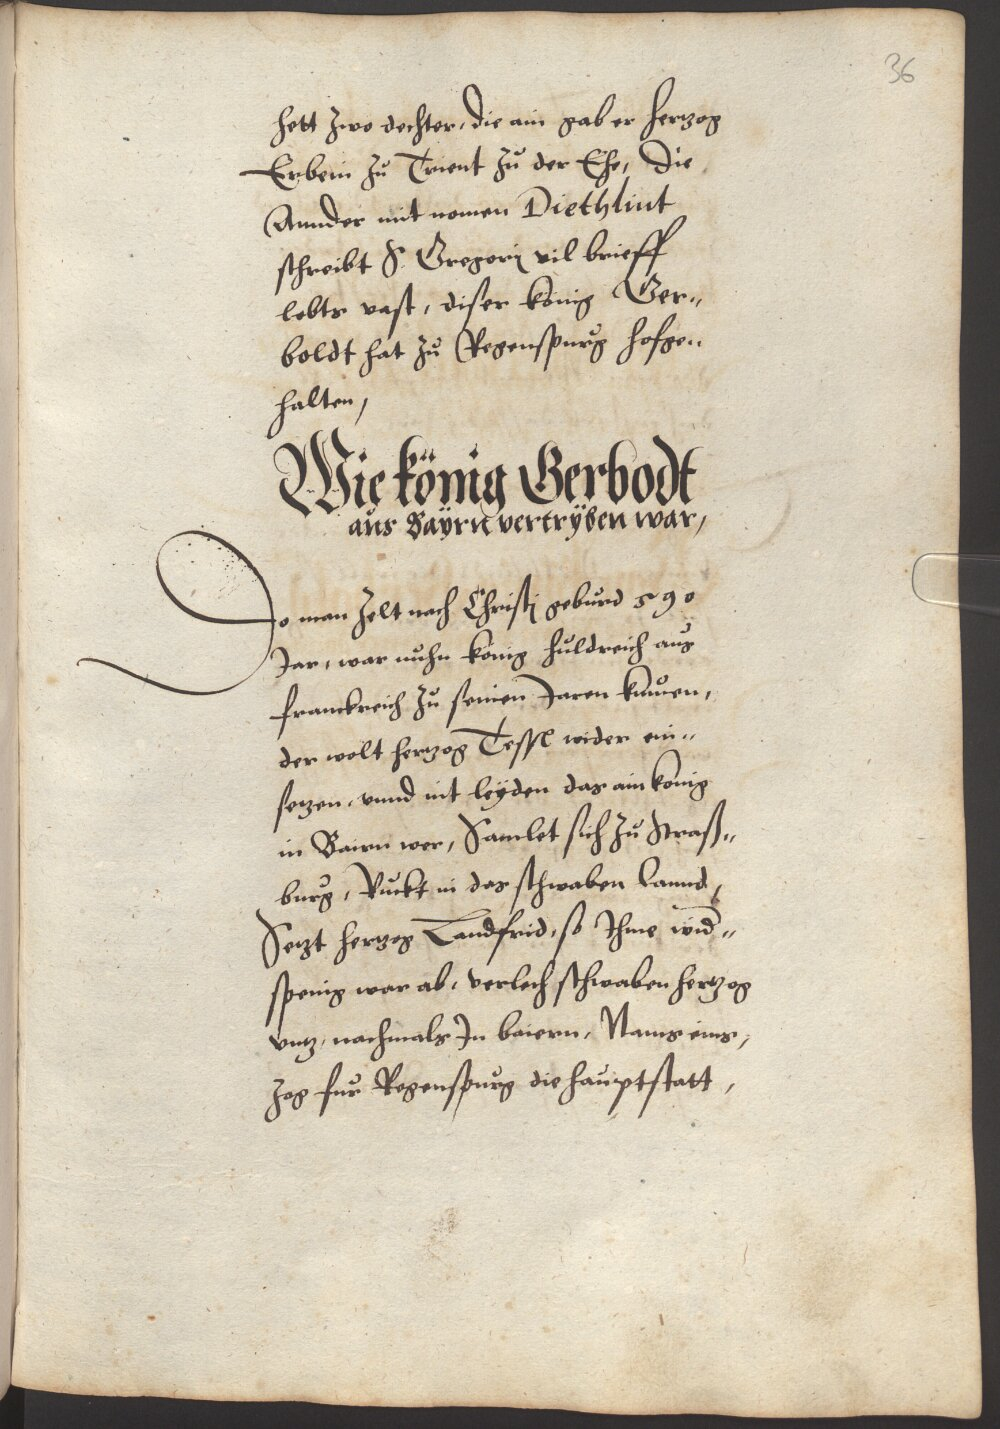 36
hett zwo dochter, die ain gab er hertzog
Erbein zů Trient zů der Ehe, Die
Annder mit nomen Diethlint
schreibt S. Gregorj vil brieff
lebts vast, diser könig Ger„
boldt hat zů Regenspurg hofge„
halten,
Wie könig Gerbodt
aus Bayrn vertryben war,
Do man zelt nach Christj geburd 590
Jar, war nuhn könig huldreich aus
franckreich zů seinen Jaren kumen,
der wolt hertzog Tessl wider ein„
setzen, vnnd nit leyden das ain könig
in Bairn wer, Samlet sich zů straß„
burg, Ruckt in das schwaben lannd,
Setzt hertzog Landfrid, so Ihme wid„
spenig war ab, verlech schwaben hertzog
vntz, nachmals In baiern, Nams eins,
zog fur Regenspurg die hauptstatt,